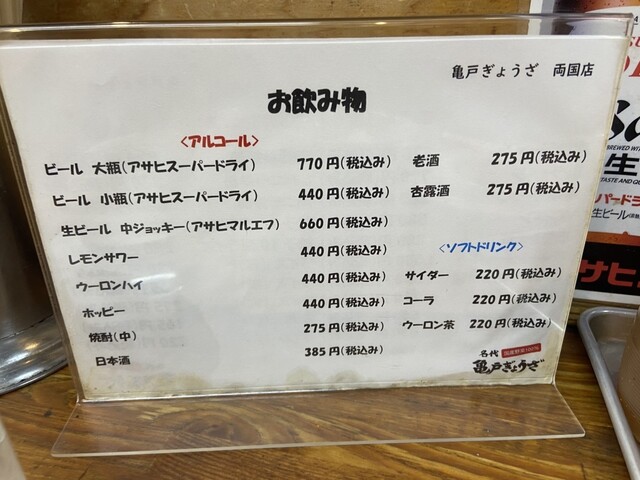 亀戸ぎょうざ 両国店
お飲み物
<アルコール>
ビール 大瓶(アサヒスーパードライ) 770円(税込み)
ビール 小瓶(アサヒスーパードライ) 440円(税込み)
生ビール 中ジョッキー(アサヒマルエフ) 660円(税込み)
レモンサワー 440円(税込み)
ウーロンハイ 440円(税込み)
ホッピー 440円(税込み)
焼酎(中) 275円(税込み)
日本酒 385円(税込み)
老酒 275円(税込み)
杏露酒 275円(税込み)
<ソフトドリンク>
サイダー 220円(税込み)
コーラ 220円(税込み)
ウーロン茶 220円(税込み)
名代 国産野菜100%
亀戸ぎょうざ
生